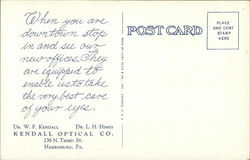 When you are
downtown stop
in and see our
new offices. They
are equipped to
enable us to take
the very best care
of your eyes.
Dr. W. F. Kendall Dr. L. H. Himes
KENDALL OPTICAL CO.
236 N. Third St.
Harrisburg, Pa.
POST CARD
PLACE
ONE CENT
STAMP
HERE